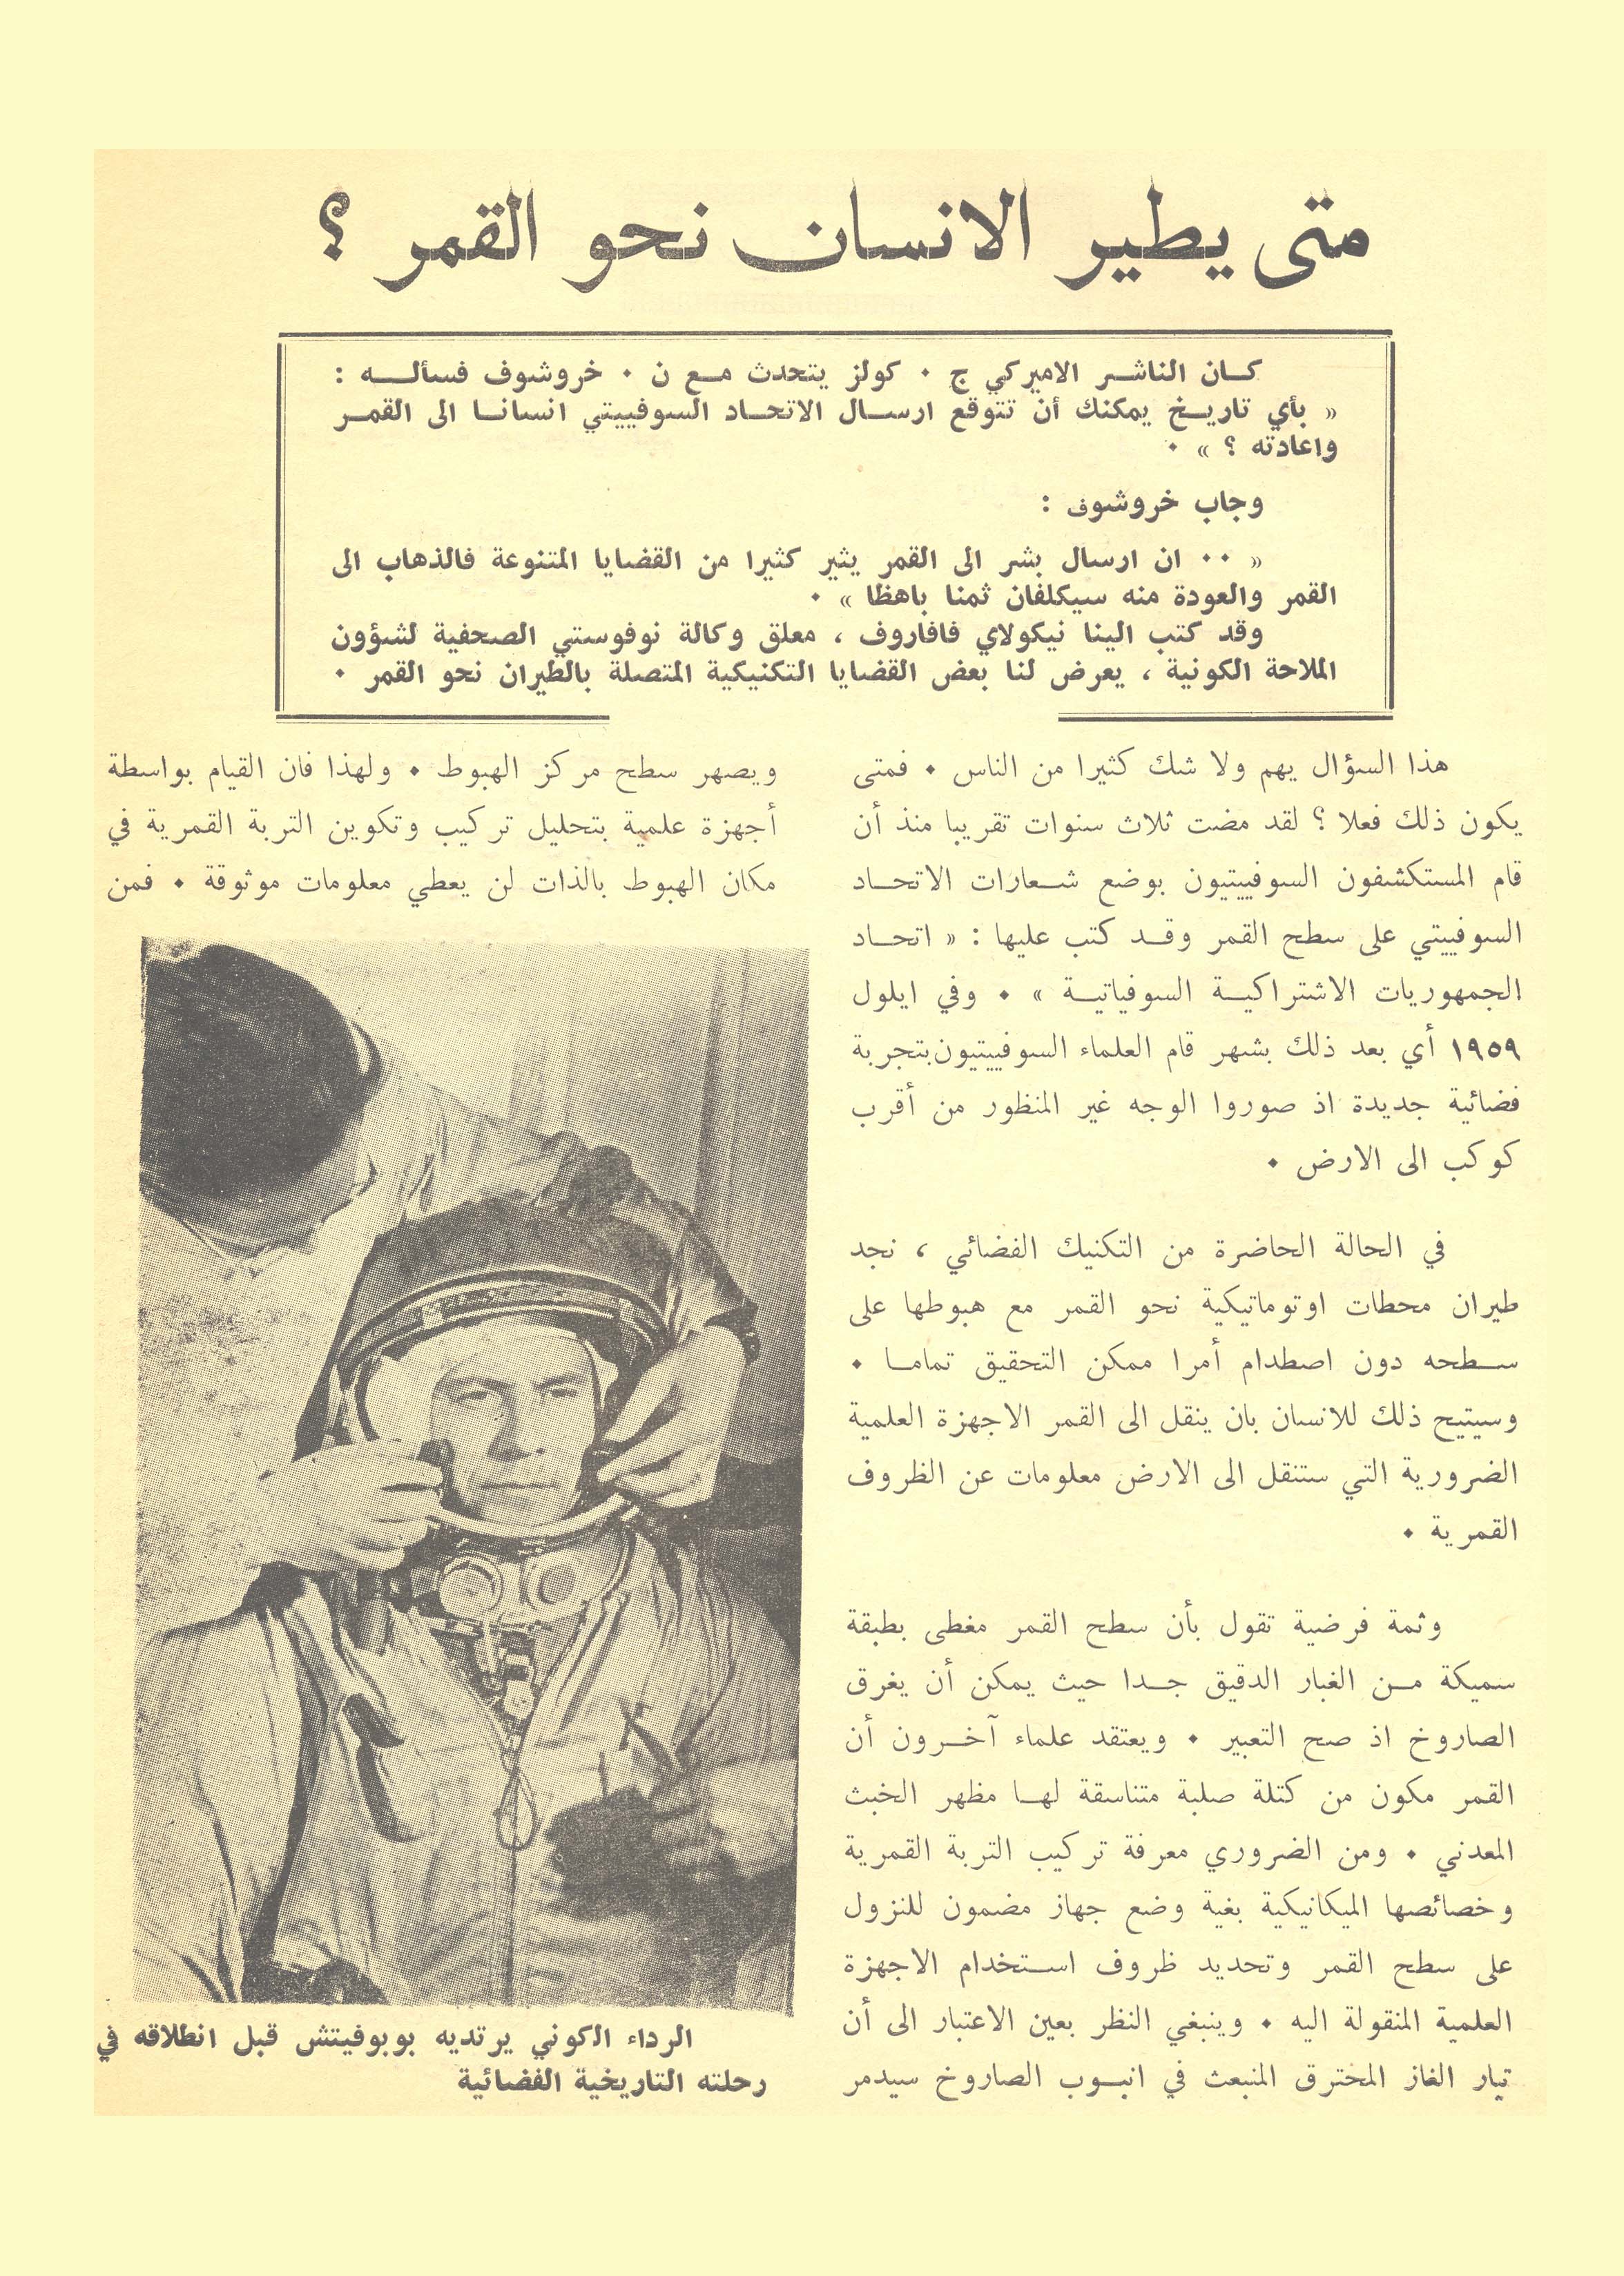 متى يطير الانسان نحو القمر ؟
كان الناشر الاميركي ج ٠ كولز يتحدث مع ن ٠ خروشوف فسأله :
« بأي تاريخ يمكنك أن تتوقع ارسال الاتحاد السوفييتي انسانا الى القمر
واعادته ؟ » ٠
وجاب خروشوف :
« ٠٠ ان ارسال بشر الى القمر يثير كثيرا من القضايا المتنوعة فالذهاب الى
القمر والعودة منه سيكلفان ثمنا باهظا » ٠
وقد كتب الينا نيكولاي فافاروف ، معلق وكالة نوفوستي الصحفية لشؤون
الملاحة الكونية ، يعرض لنا بعض القضايا التكنيكية المتصلة بالطيران نحو القمر ٠
هذا السؤال يهم ولا شك كثيرا من الناس ٠ فمتى
يكون ذلك فعلا ؟ لقد مضت ثلاث سنوات تقريبا منذ أن
قام المستكشفون السوفييتيون بوضع شعارات الاتحاد
السوفييتي على سطح القمر وقد كتب عليها : « اتحاد
الجمهوريات الاشتراكية السوفياتية » ٠ وفي ايلول
١٩٥٩ أي بعد ذلك بشهر قام العلماء السوفييتيون بتجربة
فضائية جديدة اذ صوروا الوجه غير المنظور من أقرب
كوكب الى الارض ٠
في الحالة الحاضرة من التكنيك الفضائي ، نجد
طيران محطات اوتوماتيكية نحو القمر مع هبوطها على
سطحه دون اصطدام أمرا ممكن التحقيق تماما ٠
وسيتيح ذلك للانسان بان ينقل الى القمر الاجهزة العلمية
الضرورية التي ستنقل الى الارض معلومات عن الظروف
القمرية ٠
وثمة فرضية تقول بأن سطح القمر مغطى بطبقة
سميكة من الغبار الدقيق جدا حيث يمكن أن يغرق
الصاروخ اذ صح التعبير ٠ ويعتقد علماء آخرون أن
القمر مكون من كتلة صلبة متناسقة لها مظهر الخبث
المعدني ٠ ومن الضروري معرفة تركيب التربة القمرية
وخصائصها الميكانيكية بغية وضع جهاز مضمون للنزول
على سطح القمر وتحديد ظروف استخدام الاجهزة
العلمية المنقولة اليه ٠ وينبغي النظر بعين الاعتبار الى أن
تيار الغاز المحترق المنبعث في انبوب الصاروخ سيدمر
ويصهر سطح مركز الهبوط ٠ ولهذا فان القيام بواسطة
أجهزة علمية بتحليل تركيب وتكوين التربة القمرية في
مكان الهبوط بالذات لن يعطي معلومات موثوقة ٠ فمن
الرداء الكوني يرتديه بوبوفيتش قبل انطلاقه في
رحلته التاريخية الفضائية